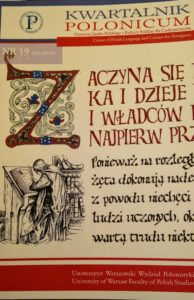 KWARTALNIK
POLONICUM
Centrum Języka Polskiego i Kultury Polskiej dla Cudzoziemców
Centre of Polish Language and Culture for Foreigners
P
NR 19
ZACZYNA SIĘ
KA I DZIEJE
I WŁADCÓW
NAJPIERW PRZ
Ponieważ na rozległ
żęta dokonują
z powodu niechęci
ludzi uczonych, ok
wartą trudu niekt
Uniwersytet Warszawski Wydział Polonistyki
University of Warsaw Faculty of Polish Studies